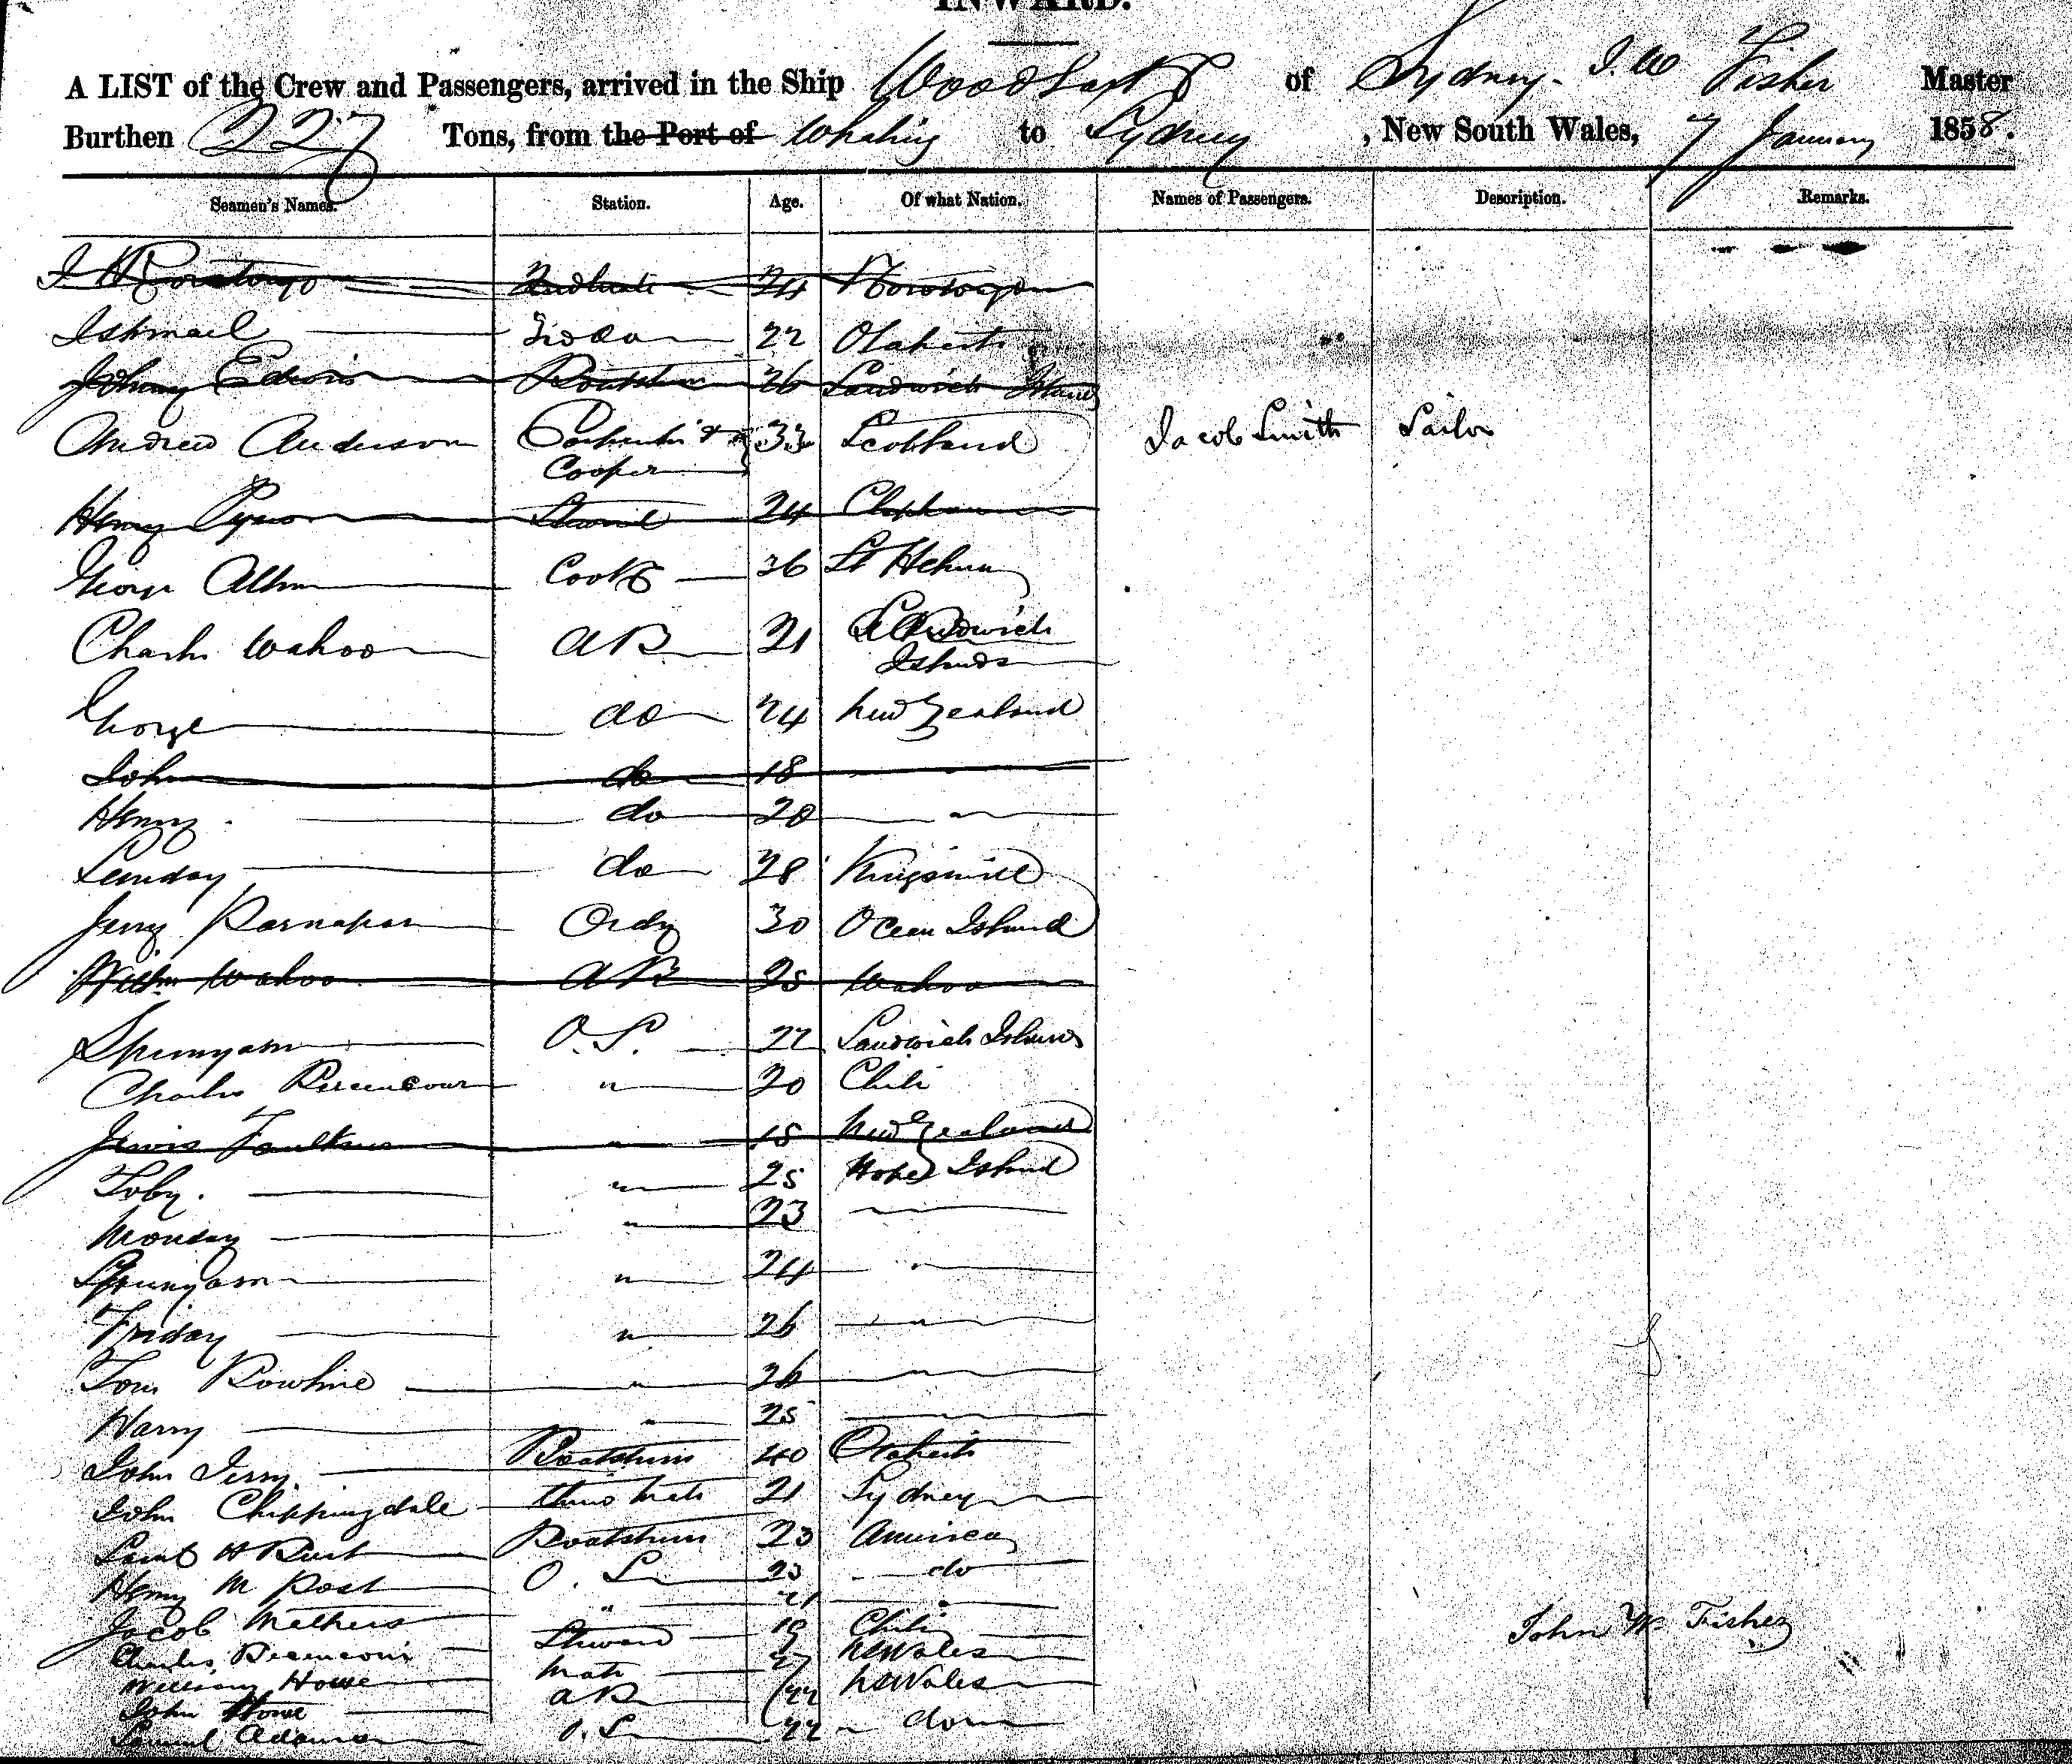 INWARD.
A LIST of the Crew and Passengers, arrived in the Ship Woodlark of Sydney. J. W Fisher Master
Burthen 227 Tons, from the Port of Whaling to Sydney, New South Wales, 7 January 1858.
Seamen's Names. Station. Age. Of what Nation. Names of Passengers. Description. Remarks.
24
Ishmael do 22 Otaheite
Johnny 26 Sandwich Islands
Andrew Anderson Carpenter & 33 Scotland Jacob Smith Sailor
Cooper
Henry Steward 24
George Allen Cook 36 St Helena
Charles Wahoo AB 21 Sandwich
Islands
George do 24 New Zealand
John do 18 "
Henry do 20 "
Sunday do 28 Kingsmill
Jerry Ordy 30 Ocean Island
Wahoo AB 25 Wahoo
Spunyarn O.S. 22 Sandwich Islands
Charles " 20 Chili
Faulkner " 18 New Zealand
Toby. " 25 Hope Island
Monday " 23
Spunyarn " 24 "
Friday " 26 "
Tom Bowline " 26 "
Harry " 25 "
John Jerry Boatsteerer 40 Otaheite
John Chippingdale Third Mate 21 Sydney
Saml H Boatsteerer 23 America
Henry M Post O. S. 23 do
Jacob Mathews " 21
Charles Steward 19 Chili
William Howe Mate 27 NSWales
John Howe AB 22 NSWales
Samuel Adams O.S. 22 do
John W. Fisher